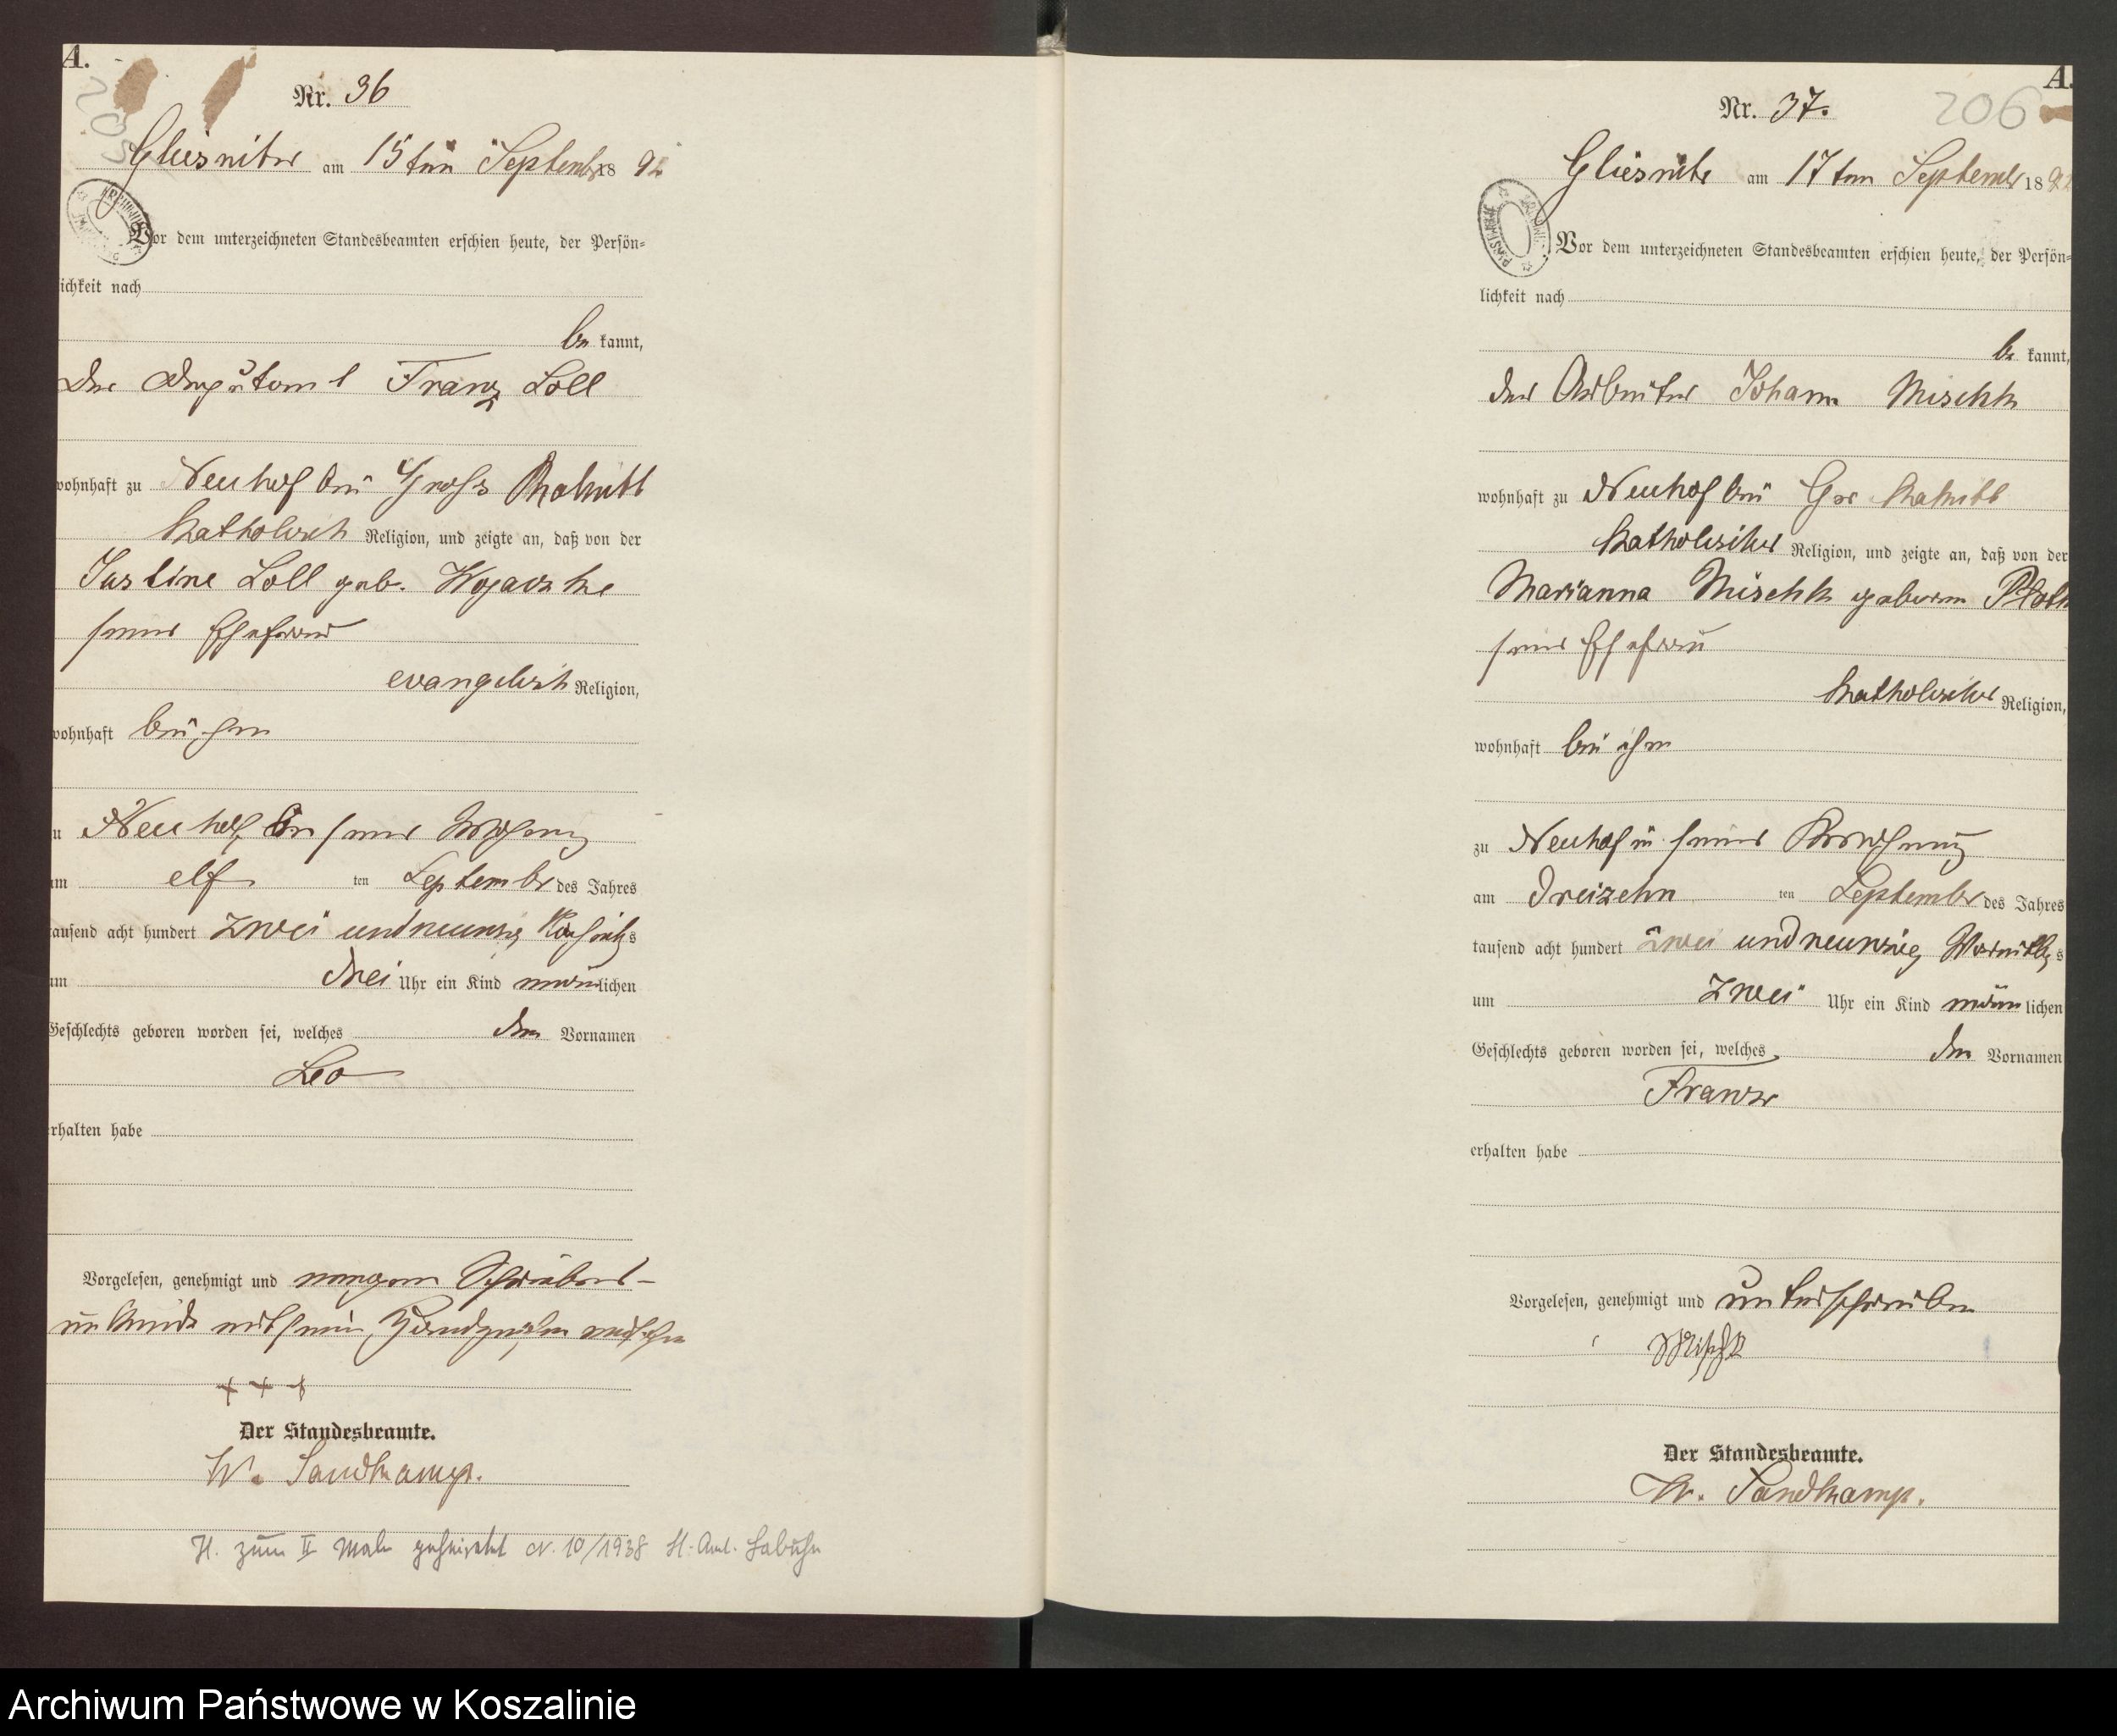 A.
205
Nr. 36
Gliesnitz am 15ten September 18 92
Vor dem unterzeichneten Standesbeamten erschien heute, der Persön=
lichkeit nach
be kannt,
Der Franz Loll
wohnhaft zu Neuhof bei Gross Rakitt
katholisch Religion, und zeigte an, daß von der
Justine Loll geb.
seiner Ehefrau
evangelisch Religion,
wohnhaft bei ihm
zu Neuhof in seiner Wohnung
am elf ten September des Jahres
tausend acht hundert zwei und neunzig Nachmittags
um drei Uhr ein Kind männlichen
Geschlechts geboren worden sei, welches den Vornamen
Leo
erhalten habe
Vorgelesen, genehmigt und wegen Schreibens-
unkunde mit sein Handzeichen versehen
+ + +
Der Standesbeamte.
W. Sandkamp.
H. zum II Male geheiratet Nr. 10/1938 St. Amt. Labuhn
A.
206
Nr. 37.
Gliesnitz am 17ten September 18 92
Vor dem unterzeichneten Standesbeamten erschien heute, der Persön=
lichkeit nach
be kannt,
der Arbeiter Johann Mischk
wohnhaft zu Neuhof bei Gr Rakitt
katholischer Religion, und zeigte an, daß von der
Marianna Mischk geboren
seiner Ehefrau
katholischer Religion,
wohnhaft bei ihm
zu Neuhof in seiner Wohnung
am dreizehn ten September des Jahres
tausend acht hundert zwei und neunzig Vormittags
um zwei Uhr ein Kind männlichen
Geschlechts geboren worden sei, welches den Vornamen
Franz
erhalten habe
Vorgelesen, genehmigt und unterschrieben
Mischk
Der Standesbeamte.
W. Sandkamp.
Archiwum Państwowe w Koszalinie